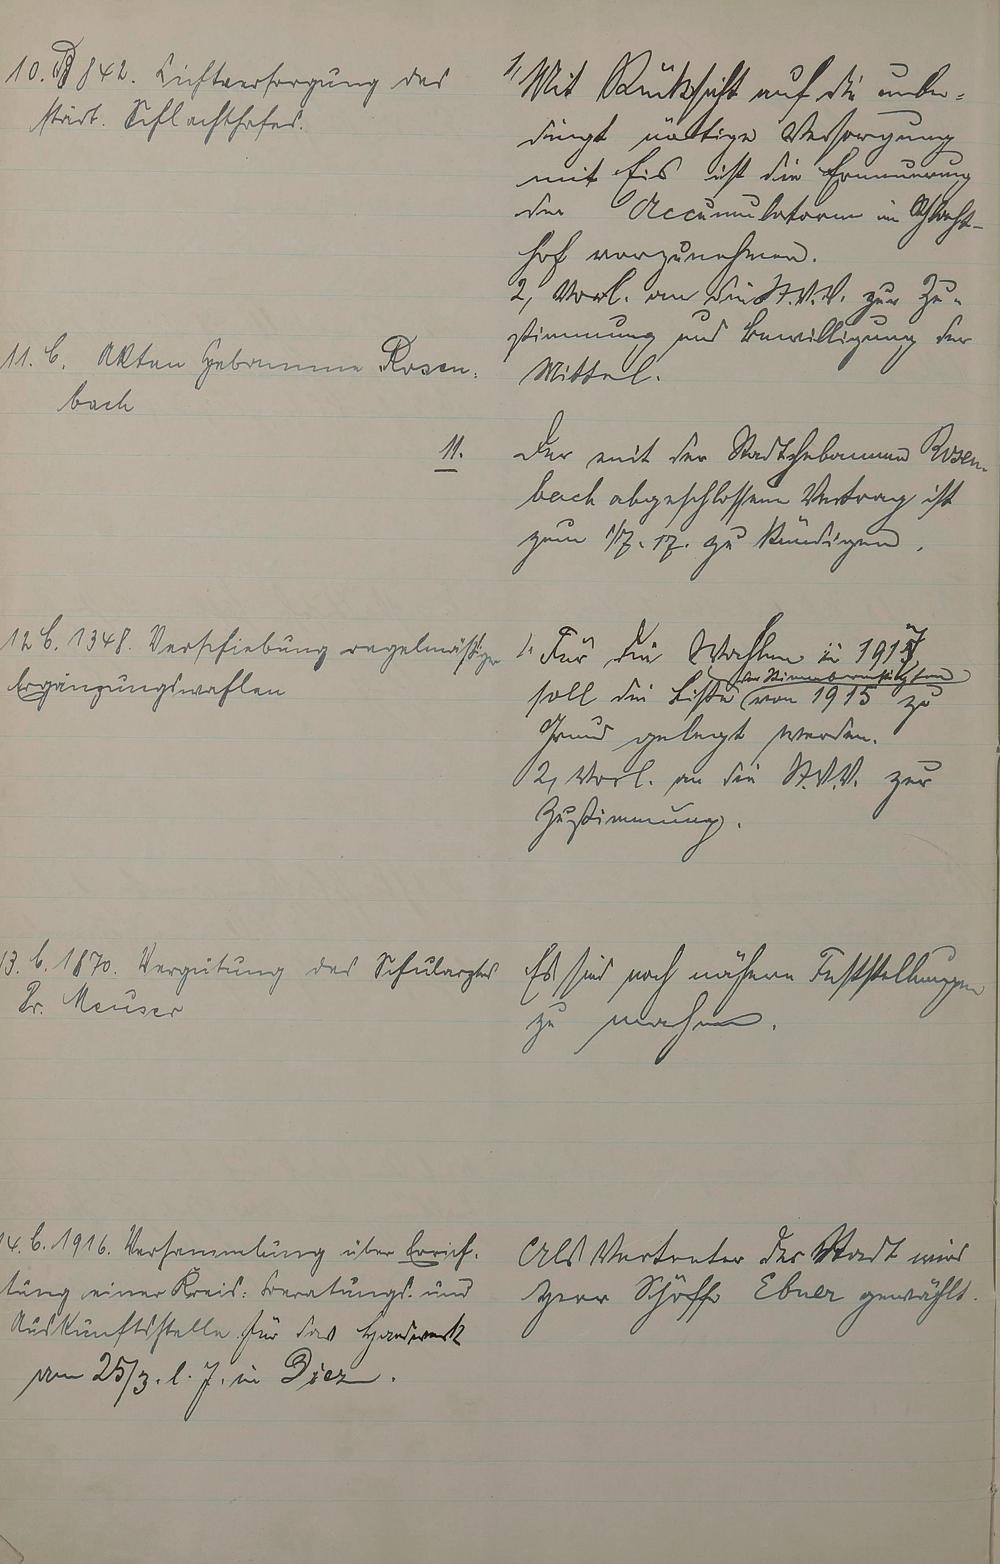 10. B 842. Lichtversorgung des
städt. Schlachthofes.
1, Mit Rücksicht auf die unbe-
dingt nötige Versorgung
mit Eis ist die Erneuerung
der Accumulatoren im Schlacht-
hof vorzunehmen.
2, Vorl. an die St.V.V. zur Zu-
stimmung und Bewilligung der
Mittel.
11. C. Akten Hebamme Rosen-
bach
11. Der mit der Stadthebamme Rosen-
bach abgeschlossene Vertrag ist
zum 1/7. 17. zu kündigen.
12 C. 1348. Verschiebung regelmäßiger
Ergänzungswahlen
1. Für die Wahlen in 1917
der Stimmberechtigten
soll die Liste von 1915 zu
Grund gelegt werden.
2, Vorl. an die St.V.V. zur
Zustimmung.
13. C. 1870. Vergütung des Schularztes
Dr. Meuser
Es sind noch nähere Feststellungen
zu machen.
14. C. 1916. Versammlung über Errich-
tung einer Kreis- Beratungs- und
Auskunftsstelle für das Handwerk
am 25/3. l. J. in Diez.
Als Vertreter der Stadt wird
Herr Schöffe Ebner gewählt.